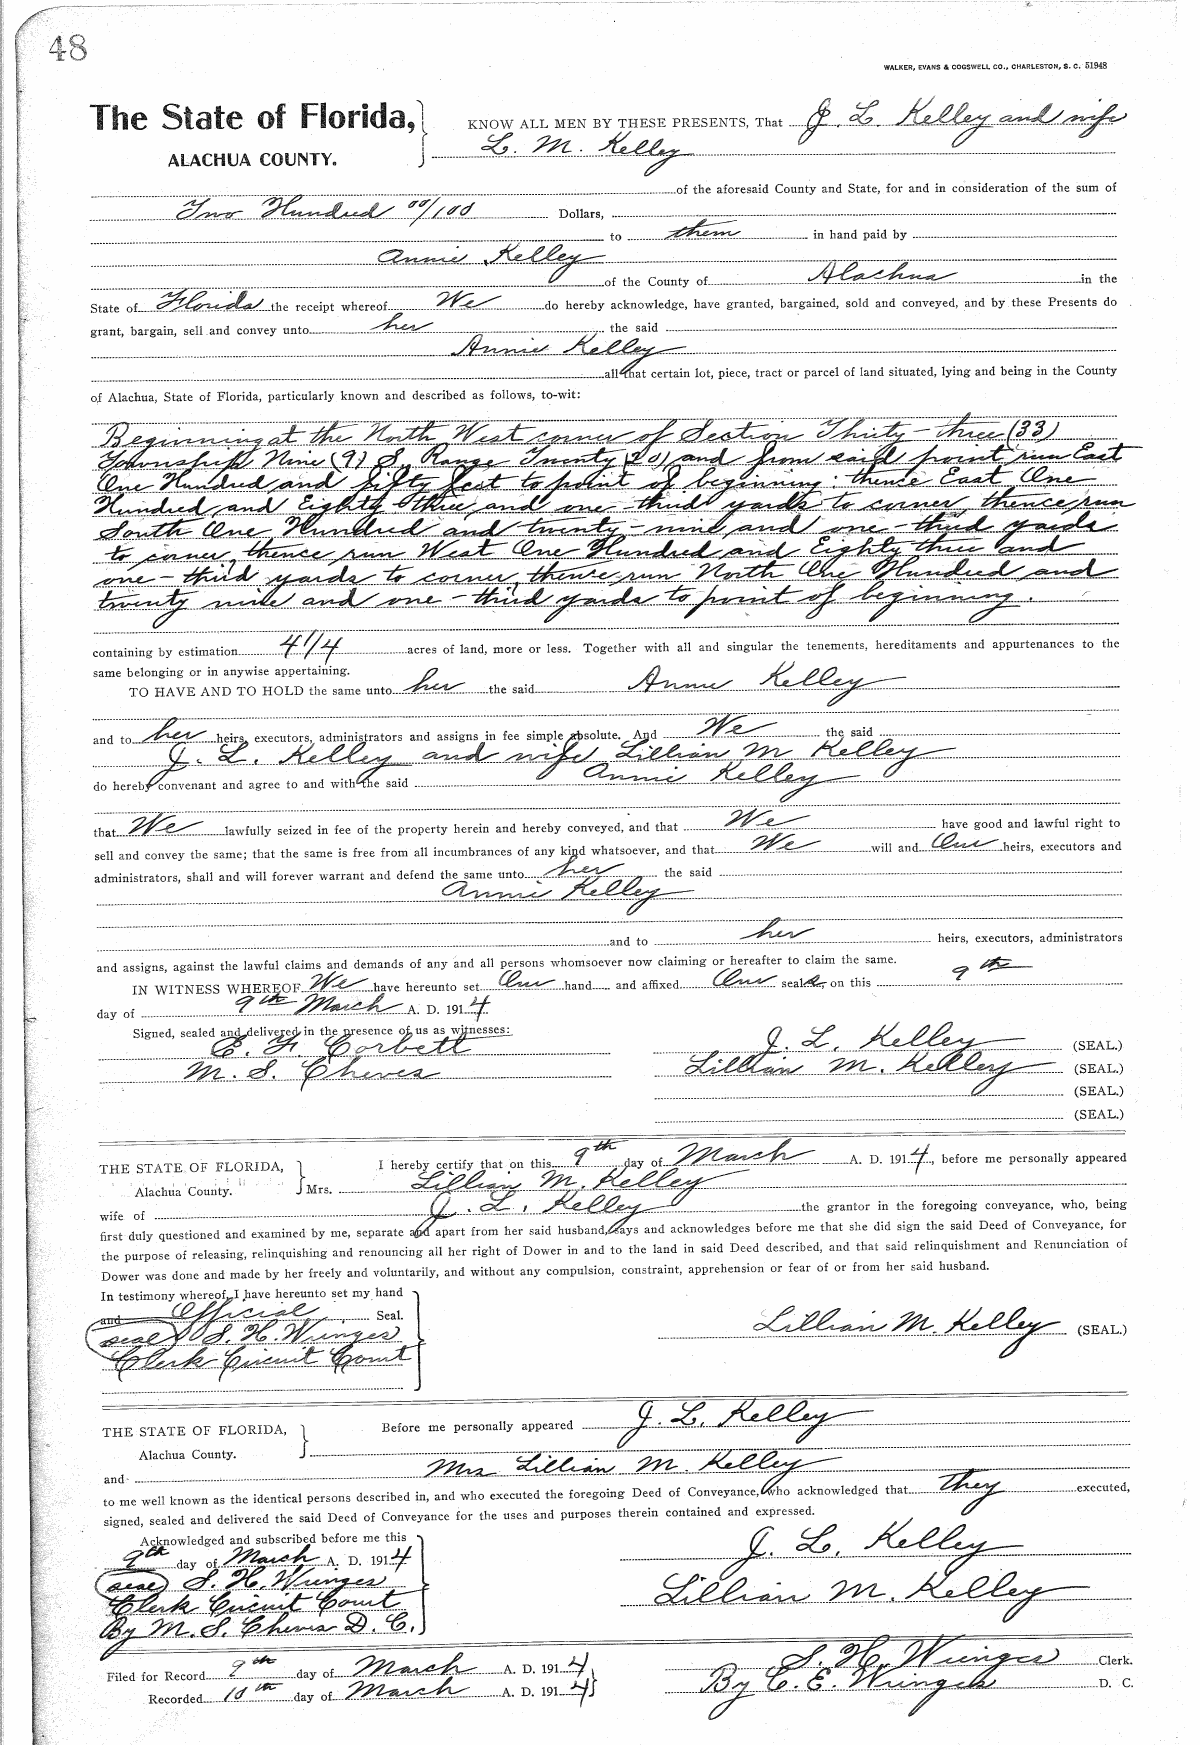 48
WALKER, EVANS & COGSWELL CO., CHARLESTON, S. C. 51948
The State of Florida,
ALACHUA COUNTY.
KNOW ALL MEN BY THESE PRESENTS, That J. L. Kelley and wife
L. M. Kelley
of the aforesaid County and State, for and in consideration of the sum of
Two Hundred 00/100 Dollars,
to them in hand paid by
Annie Kelley
of the County of Alachua in the
State of Florida the receipt whereof We do hereby acknowledge, have granted, bargained, sold and conveyed, and by these Presents do
grant, bargain, sell and convey unto her the said
Annie Kelley
all that certain lot, piece, tract or parcel of land situated, lying and being in the County
of Alachua, State of Florida, particularly known and described as follows, to-wit:
Beginning at the North West corner of Section Thirty-three (33)
Township Nine (9) S, Range Twenty (20) and from said point run East
One Hundred and fifty feet to point of beginning; thence East One
Hundred and Eighty three and one-third yards to corner, thence run
South One Hundred and twenty-nine and one-third yards
to corner, thence run West One Hundred and Eighty three and
one-third yards to corner, thence run North One Hundred and
twenty nine and one-third yards to point of beginning.
containing by estimation 4 1/4 acres of land, more or less. Together with all and singular the tenements, hereditaments and appurtenances to the
same belonging or in anywise appertaining.
TO HAVE AND TO HOLD the same unto her the said Annie Kelley
and to her heirs, executors, administrators and assigns in fee simple absolute. And We the said
J. L. Kelley and wife Lillian M Kelley
do hereby convenant and agree to and with the said Annie Kelley
that We lawfully seized in fee of the property herein and hereby conveyed, and that We have good and lawful right to
sell and convey the same; that the same is free from all incumbrances of any kind whatsoever, and that We will and Our heirs, executors and
administrators, shall and will forever warrant and defend the same unto her the said
Annie Kelley
and to her heirs, executors, administrators
and assigns, against the lawful claims and demands of any and all persons whomsoever now claiming or hereafter to claim the same.
IN WITNESS WHEREOF We have hereunto set Our hand and affixed Our seals on this 9th
day of 9th March A. D. 1914
Signed, sealed and delivered in the presence of us as witnesses:
E. F. Corbett
M. S. Cheves
J. L. Kelley (SEAL.)
Lillian M. Kelley (SEAL.)
(SEAL.)
(SEAL.)
THE STATE OF FLORIDA,
Alachua County.
I hereby certify that on this 9th day of March A. D. 1914, before me personally appeared
Mrs. Lillian M. Kelley
wife of J. L. Kelley the grantor in the foregoing conveyance, who, being
first duly questioned and examined by me, separate and apart from her said husband, says and acknowledges before me that she did sign the said Deed of Conveyance, for
the purpose of releasing, relinquishing and renouncing all her right of Dower in and to the land in said Deed described, and that said relinquishment and Renunciation of
Dower was done and made by her freely and voluntarily, and without any compulsion, constraint, apprehension or fear of or from her said husband.
In testimony whereof, I have hereunto set my hand
and Official Seal.
seal S. H. Wienges
Clerk Circuit Court
Lillian M. Kelley (SEAL.)
THE STATE OF FLORIDA,
Alachua County.
Before me personally appeared J. L. Kelley
and Mrs Lillian M. Kelley
to me well known as the identical persons described in, and who executed the foregoing Deed of Conveyance, who acknowledged that they executed,
signed, sealed and delivered the said Deed of Conveyance for the uses and purposes therein contained and expressed.
Acknowledged and subscribed before me this
9th day of March A. D. 1914
seal S. H. Wienges
Clerk Circuit Court
By M. S. Cheves D. C.
J. L. Kelley
Lillian M. Kelley
Filed for Record 9th day of March A. D. 1914
Recorded 10th day of March A. D. 1914
S. H. Wienges Clerk.
By C. E. Wienges D. C.